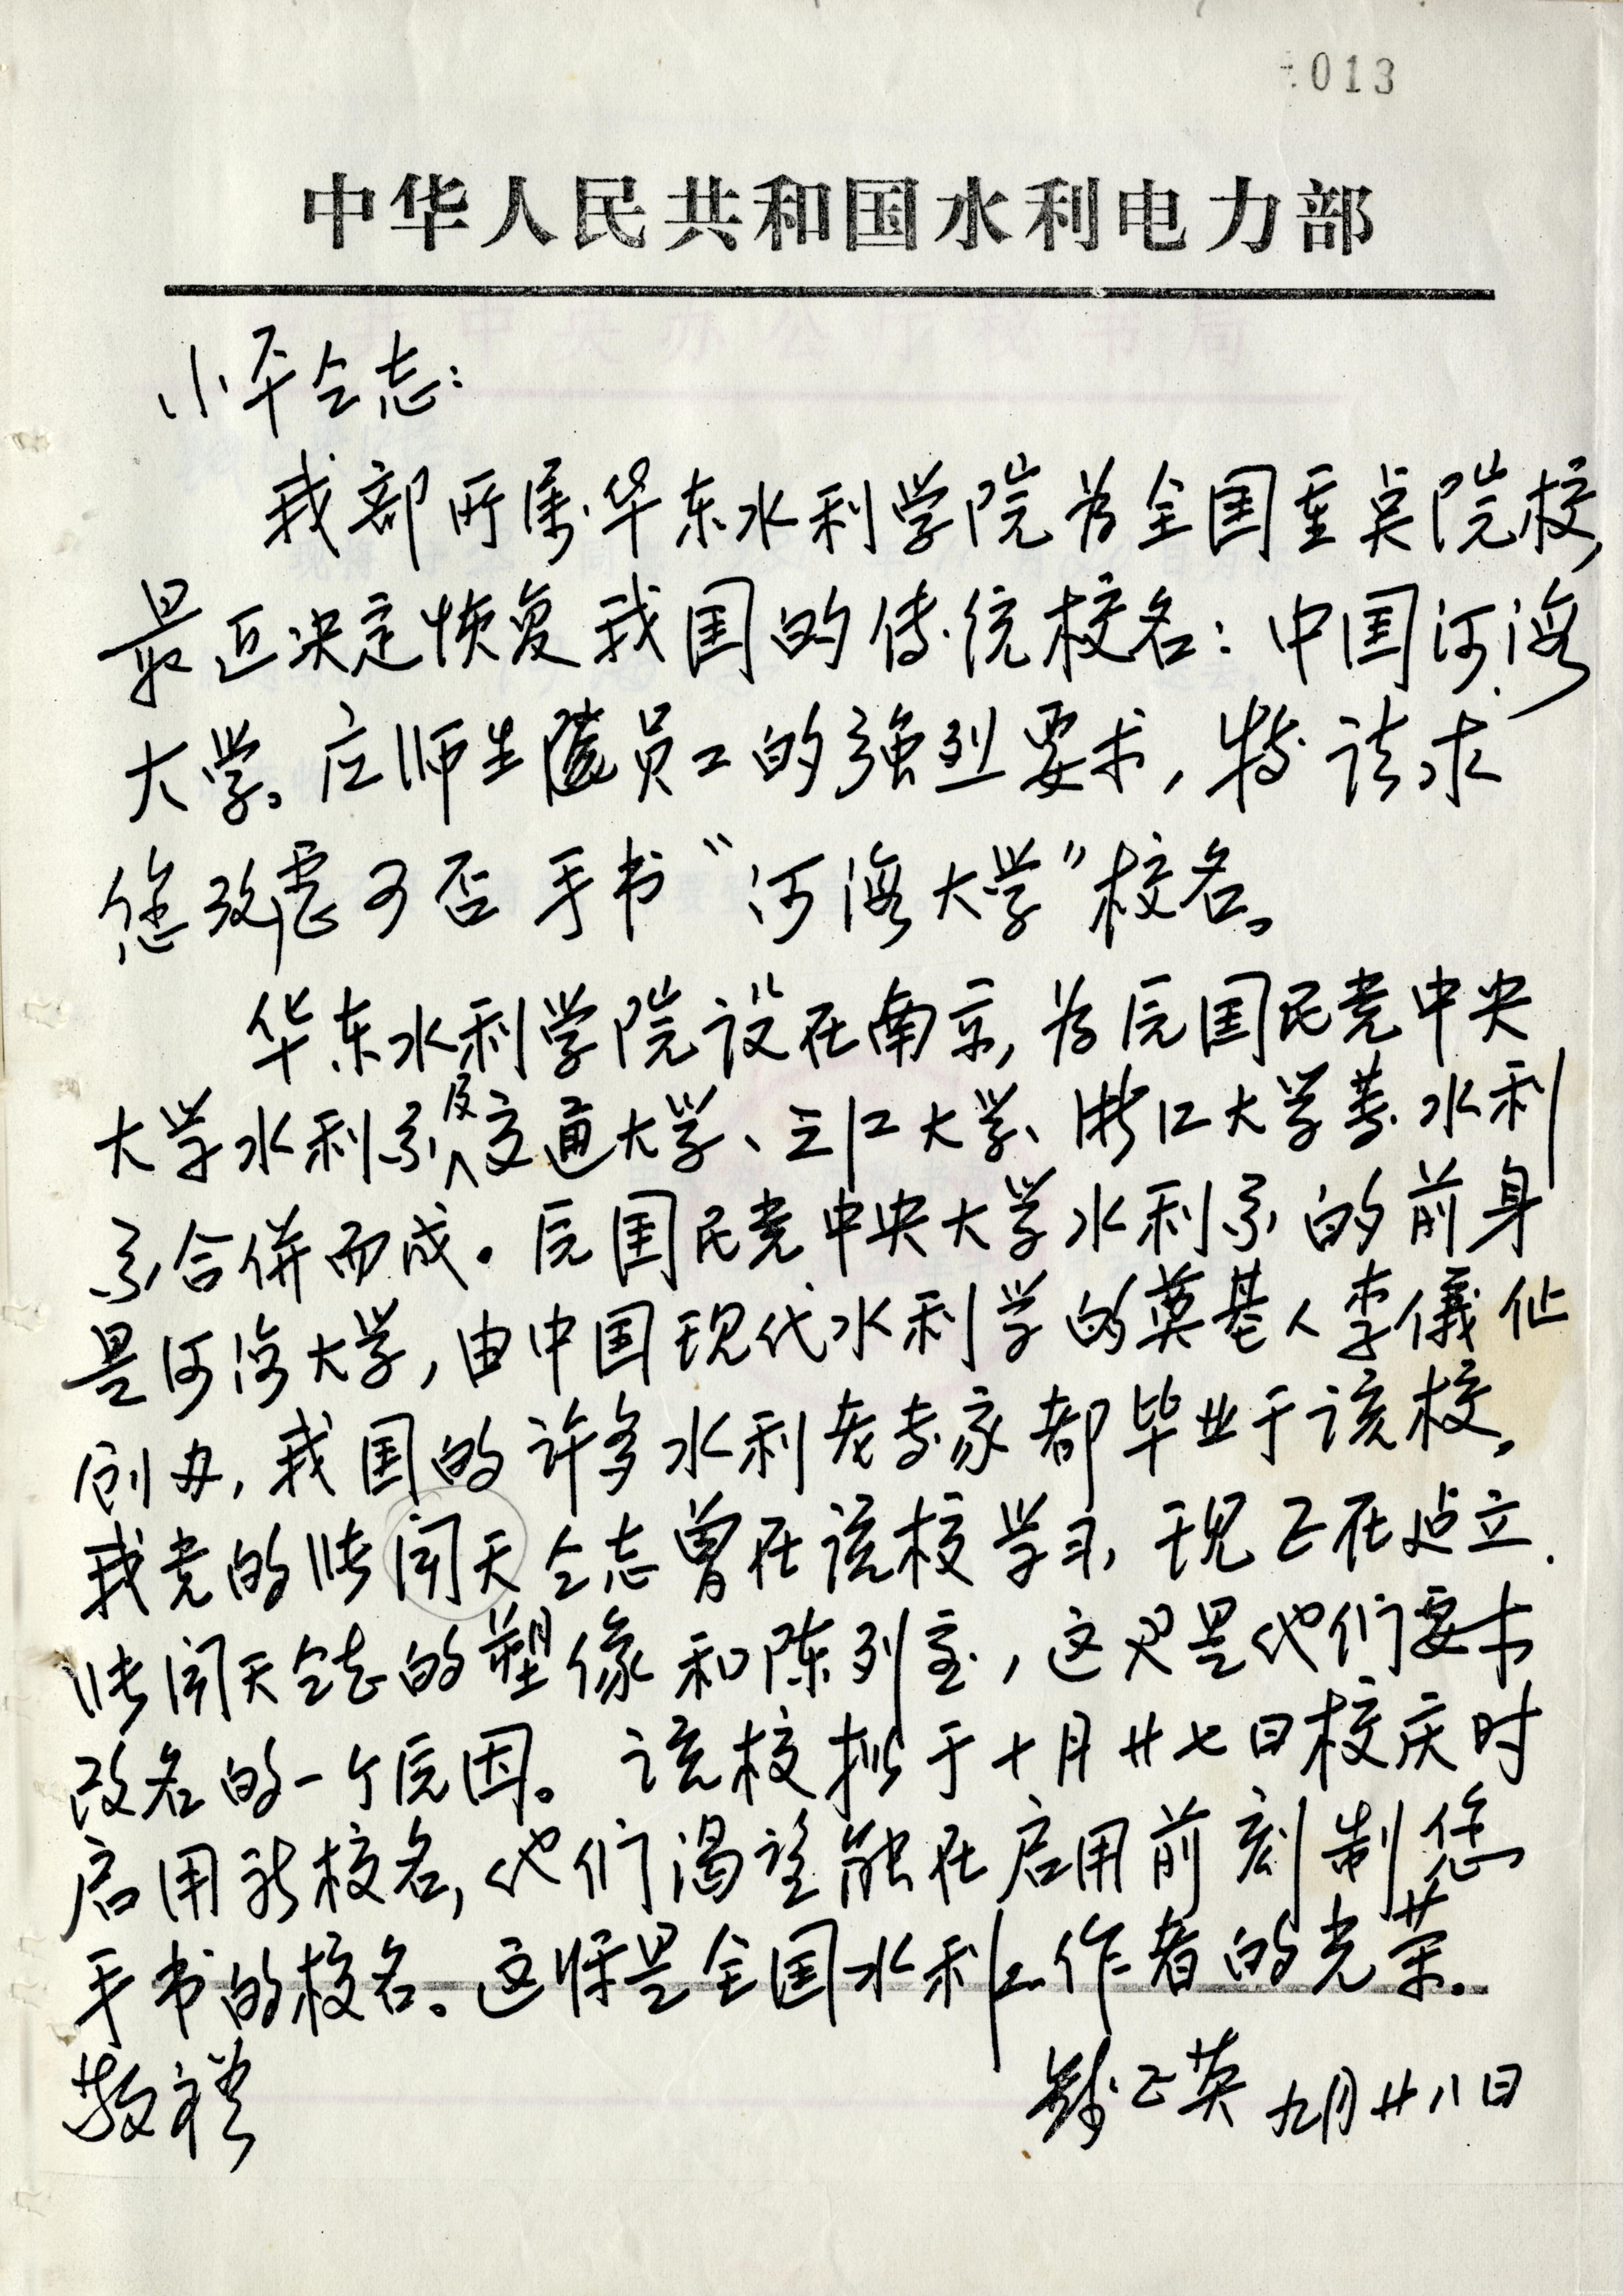 013
中华人民共和国水利电力部
小平仝志：
我部所属华东水利学院为全国重点院校，
最近决定恢复我国的传统校名：中国河海
大学。应师生员工的强烈要求，特请求
您考虑可否手书“河海大学”校名。
华东水利学院设在南京，为原国民党中央
大学水利系及交通大学、三江大学、浙江大学等水利
系合併而成。原国民党中央大学水利系的前身
是河海大学，由中国现代水利学的奠基人李儀祉
创办，我国的许多水利老专家都毕业于该校。
我党的张闻天仝志曾在该校学习，现正在建立
张闻天仝志的塑像和陈列室，这只是他们要求
改名的一个原因。该校拟于十月廿七日校庆时
启用新校名，他们渴望能在启用前刻制您
手书的校名。这将是全国水利工作者的光荣。
敬礼
钱正英 九月廿八日